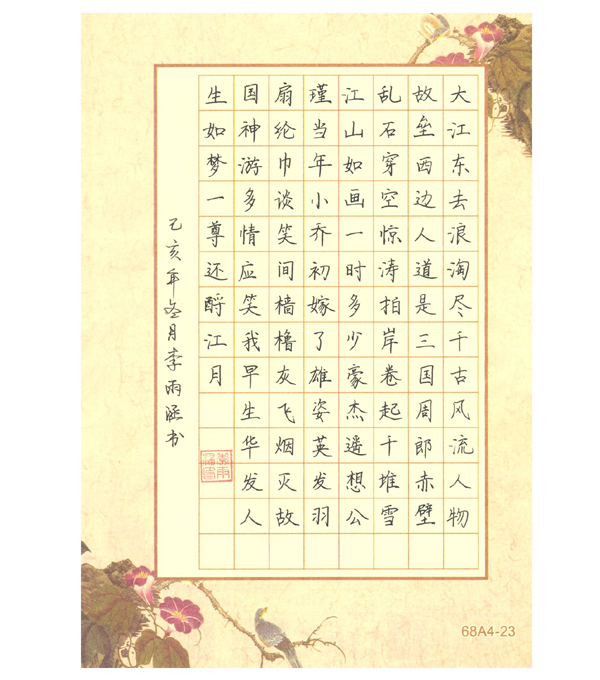 大江东去浪淘尽千古风流人物
故垒西边人道是三国周郎赤壁
乱石穿空惊涛拍岸卷起千堆雪
江山如画一时多少豪杰遥想公
瑾当年小乔初嫁了雄姿英发羽
扇纶巾谈笑间樯橹灰飞烟灭故
国神游多情应笑我早生华发人
生如梦一尊还酹江月
己亥年冬月李雨涵书
68A4-23